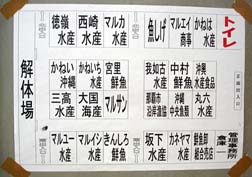 トイレ
正面出入口
徳嶺水産
西崎水産
マルカ水産
魚しげ
マルエイ商事
かねは水産
解体場
かねい沖縄
かねいち水産
宮里鮮魚
我如古水産
中村鮮魚
沖興水産食品
三高水産
大国海産
マルサン
那覇市沿岸漁協
沖縄中央魚類
丸六水産
マルユー水産
マルイシ水産
きんしろ鮮魚
坂下水産
カネヤマ水産
鮮魚卸組合売店
管理事務所
倉津一